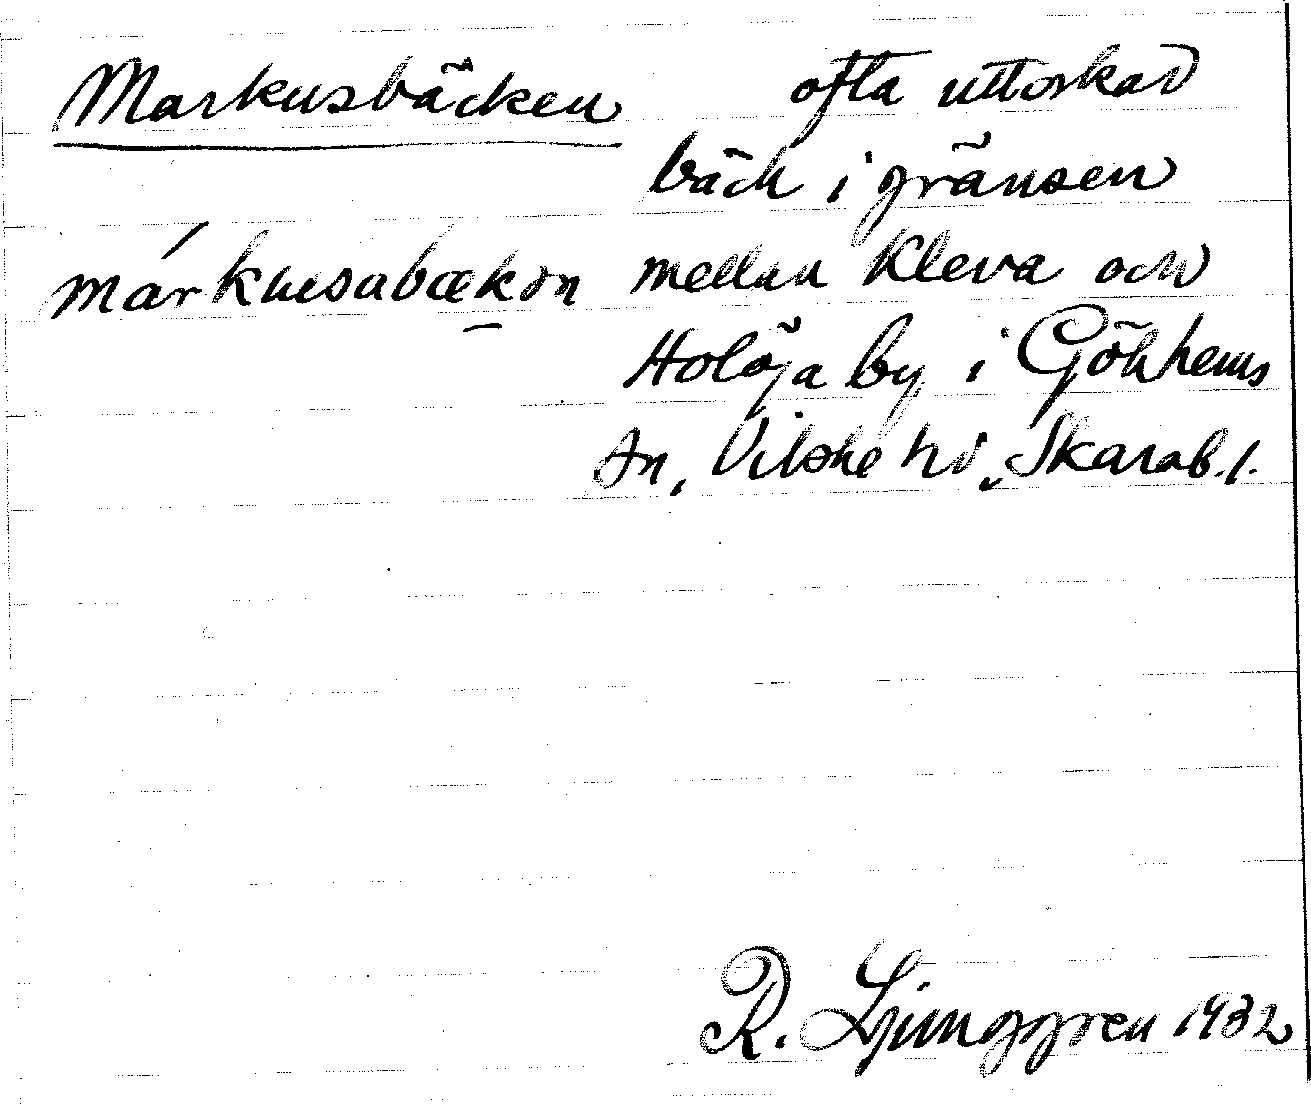 Markusbäcken
márkusabækən
ofta uttorkad
bäck i gränsen
mellan Kleva och
Holöja by, i Gökhems
sn, Vilske hd, Skarab. l.
R. Ljunggren 1932